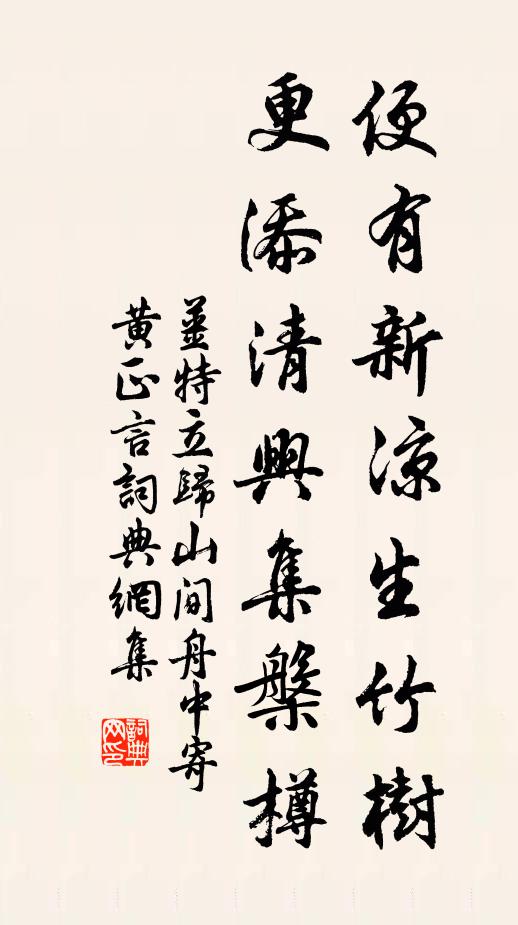 便有新涼生竹樹
更添清興集槃樽
姜特立歸山間舟中寄
黃正言詞典網集
詞典網印